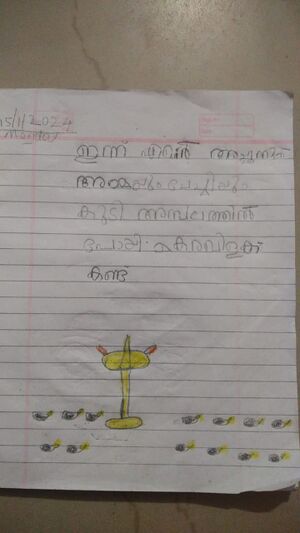 15/1/2024
Monday
ഇന്ന് ഞാൻ
അമ്മയും ചേച്ചിയും
കൂടി അമ്പലത്തിൽ
പോയി. മകരവിളക്ക്
കണ്ട്